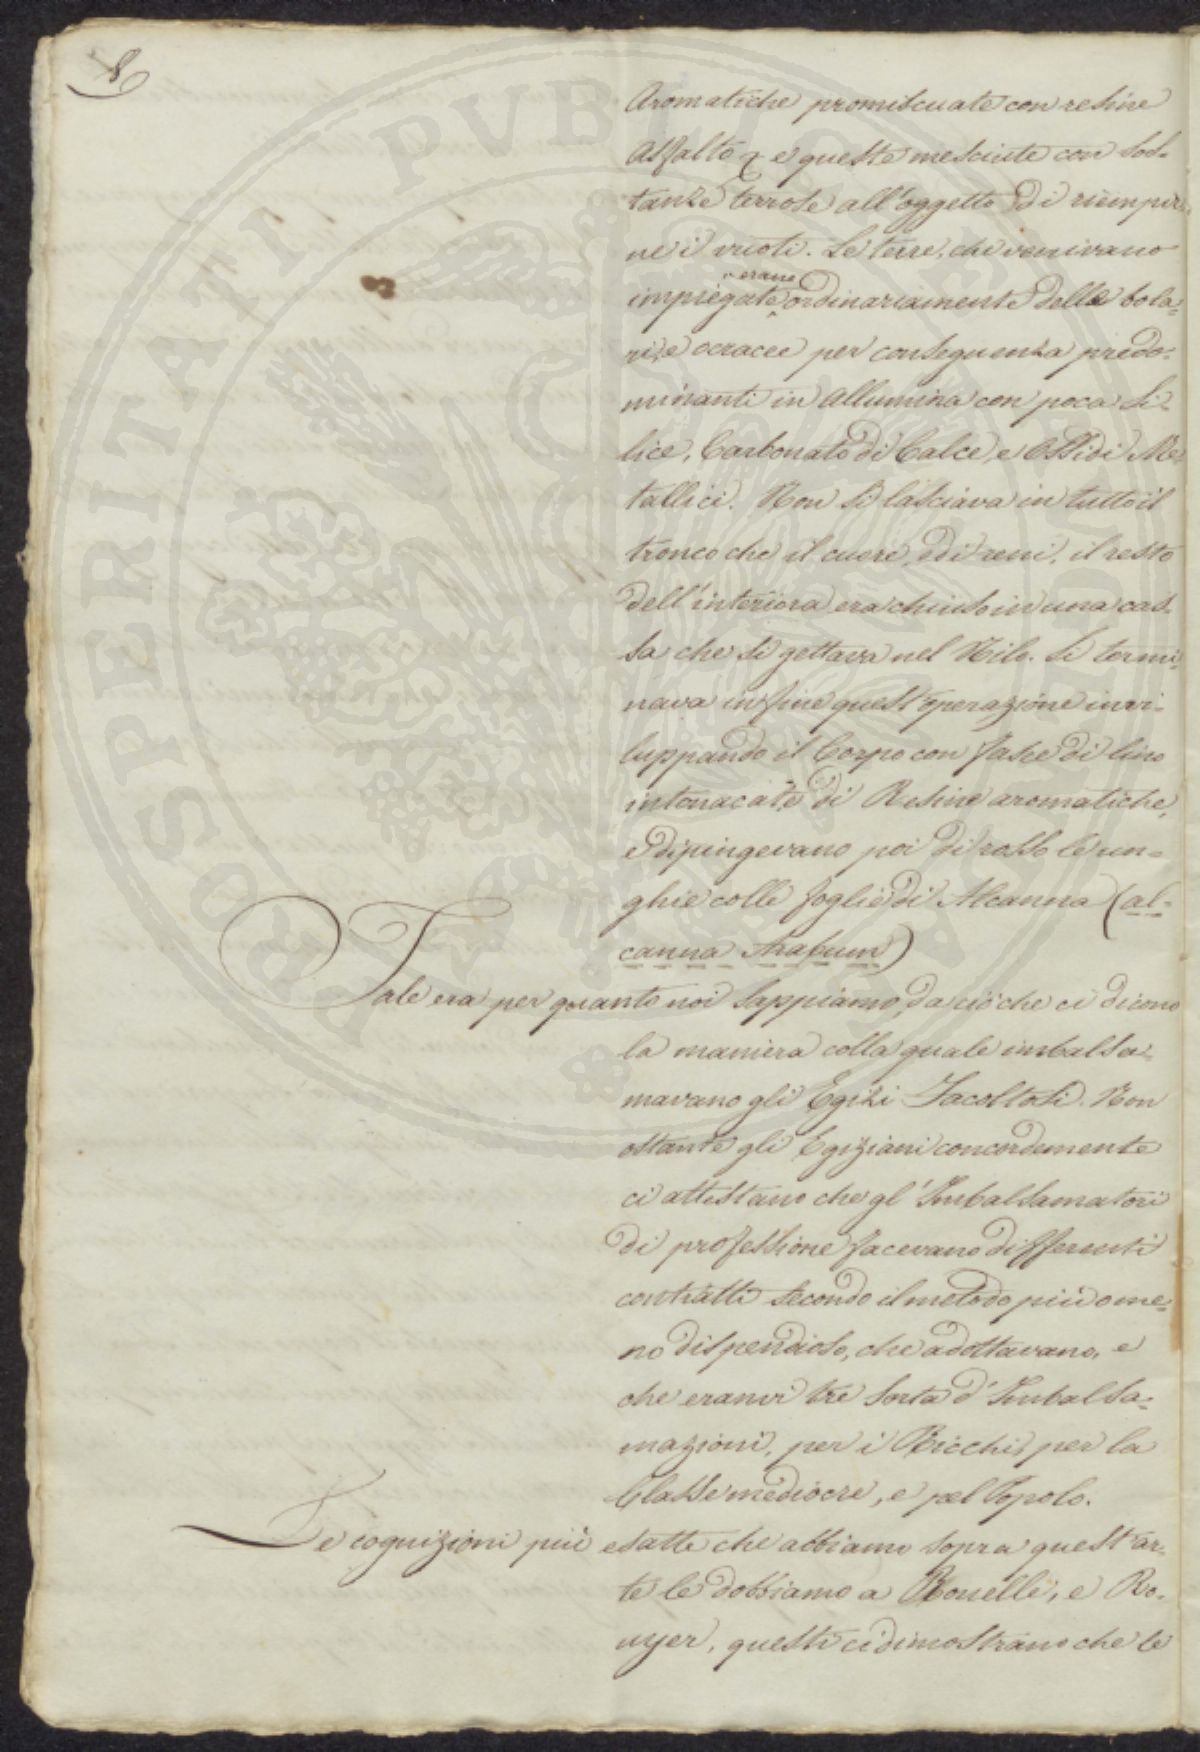 8
Aromatiche promiscuate con resine
Asfalto & e queste mesciute con sos-
tanze terrose all'oggetto di riempir
ne i vuoti. Le terre, che venivano
erano
impiegate ordinariamente delle bola-
ri, e ocracee per conseguenza predo-
minanti in Allumina con poca Si-
lice, Carbonato di Calce, e Ossidi Me-
tallici. Non si lasciava in tutto il
tronco che il cuore, ed i reni, il resto
dell'interiora era chiuso in una cas-
sa che si gettava nel Nilo. Si termi-
nava in fine quest'operazione invi-
luppando il Corpo con fasce di lino
intonacate di Resine aromatiche,
e dipingevano poi di rosso le un-
ghie colle foglie di Alcanna (al-
canna Arabum)
Tale era per quanto noi sappiamo, da ciò che ci dicono
la maniera colla quale imbalsa-
mavano gli Egizi Facoltosi. Non
ostante gli Egiziani concordemente
ci attestano che gl'Imbalsamatori
di professione facevano differenti
contratti secondo il metodo più o me-
no dispendioso, che adottavano, e
che eranvi tre sorta d'Imbalsa-
mazioni, per i Ricchi, per la
Classe mediocre, e pel Popolo.
Le cognizioni più esatte che abbiamo sopra quest'ar-
te le dobbiamo a Rouelle, e Ro-
uyer, questi ci dimostrano che le
PROSPERITATI PUBLICAE AUGENDAE